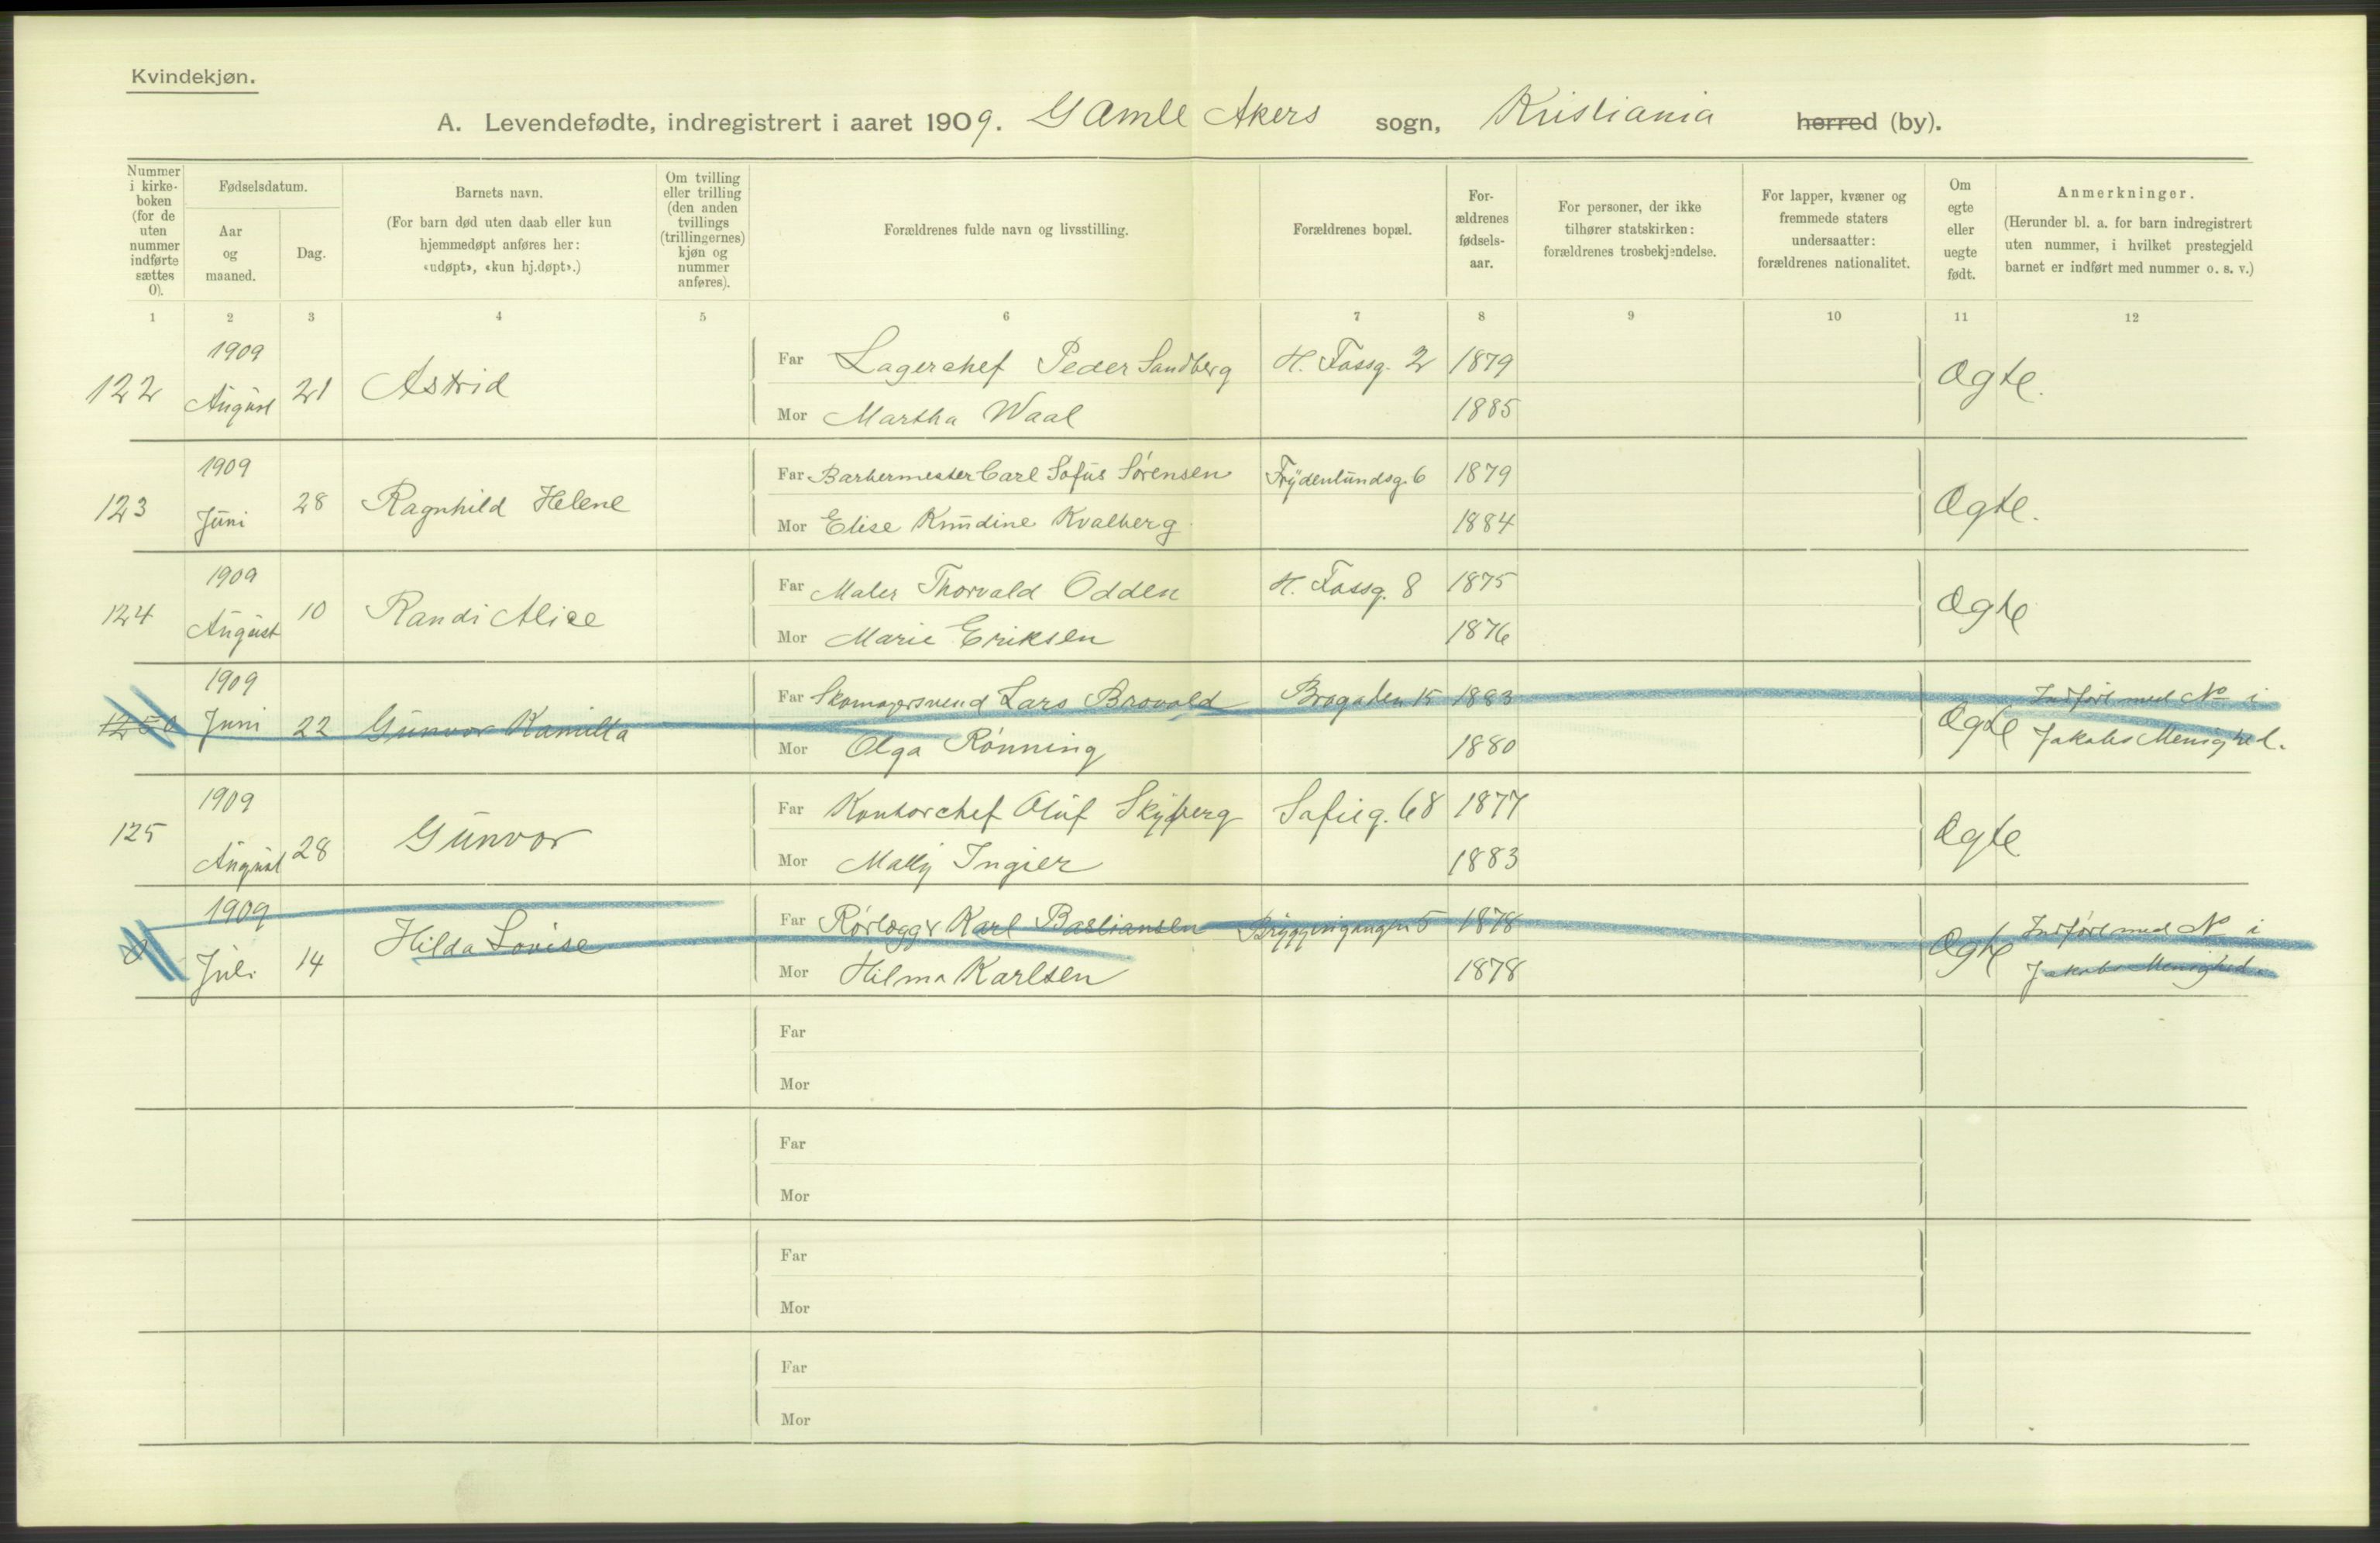 Kvindekjøn.
A. Levendefødte, indregistrert i aaret 1909. Gamle Akers sogn, Kristiania herred (by).
Nummer i kirkeboken (for de uten nummer indførte sættes 0).
Fødselsdatum.
Aar og maaned.
Dag.
Barnets navn.
(For barn død uten daab eller kun hjemmedøpt anføres her: «udøpt», «kun hj.døpt».)
Om tvilling eller trilling (den anden tvillings (trillingernes) kjøn og nummer anføres).
Forældrenes fulde navn og livsstilling.
Forældrenes bopæl.
Forældrenes fødselsaar.
For personer, der ikke tilhører statskirken: forældrenes trosbekjendelse.
For lapper, kvæner og fremmede staters undersaatter: forældrenes nationalitet.
Om egte eller uegte født.
Anmerkninger.
(Herunder bl. a. for barn indregistrert uten nummer, i hvilket prestegjeld barnet er indført med nummer o. s. v.)
1 2 3 4 5 6 7 8 9 10 11 12
1909 Far Lagerchef Peder Sandberg H. Fossg. 2 1879
122 August 21 Astrid Ægte.
Mor Martha Waal 1885
1909 Far Barbermester Carl Sofus Sørensen Frydenlundsg. 6 1879
123 Juni 28 Ragnhild Helene Ægte.
Mor Elise Knudine Kvalberg 1884
1909 Far Maler Thorvald Odden H. Fossg. 8 1875
124 August 10 Randi Alice Ægte
Mor Marie Eriksen 1876
1909 Far Skomagersvend Lars Brovold Brogaten 15 1883 Indført med No i
0 Juni 22 Gunvor Kamilla Ægte Jakobs Menighed.
Mor Olga Rønning 1880
1909 Far Kontorchef Oluf Skyberg Sofieg. 68 1877
125 August 28 Gunvor Ægte
Mor Mally Ingier 1883
1909 Far Rørlægger Karl Bastiansen 5 1878 Indført med No i
0 Juli 14 Hilda Lovise Ægte Jakobs Menighed.
Mor Hilma Karlsen 1878
Far
Mor
Far
Mor
Far
Mor
Far
Mor